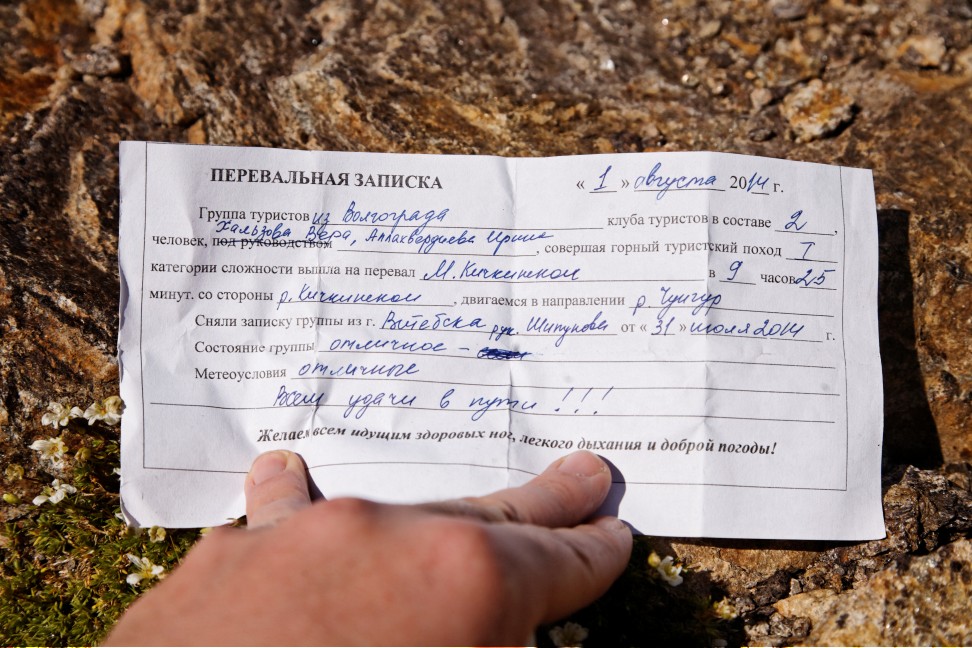 ПЕРЕВАЛЬНАЯ ЗАПИСКА « 1 » августа 2014 г.
Группа туристов из Волгограда клуба туристов в составе 2,
Хальзова Вера, Аллахвердиева Ирина
человек, под руководством, совершая горный туристский поход 1
категории сложности вышла на перевал М. Кичкинекол в 9 часов 25
минут. со стороны р. Кичкинекол, двигаемся в направлении р. Чунгур
Сняли записку группы из г. Витебска рук. Шипунова от « 31 » июля 2014 г.
Состояние группы отличное -
Метеоусловия отличные
Всем удачи в пути!!!
Желаем всем идущим здоровых ног, легкого дыхания и доброй погоды!